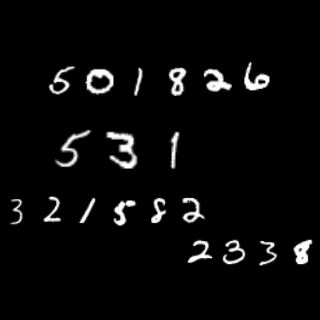 501826
531
321582
2338